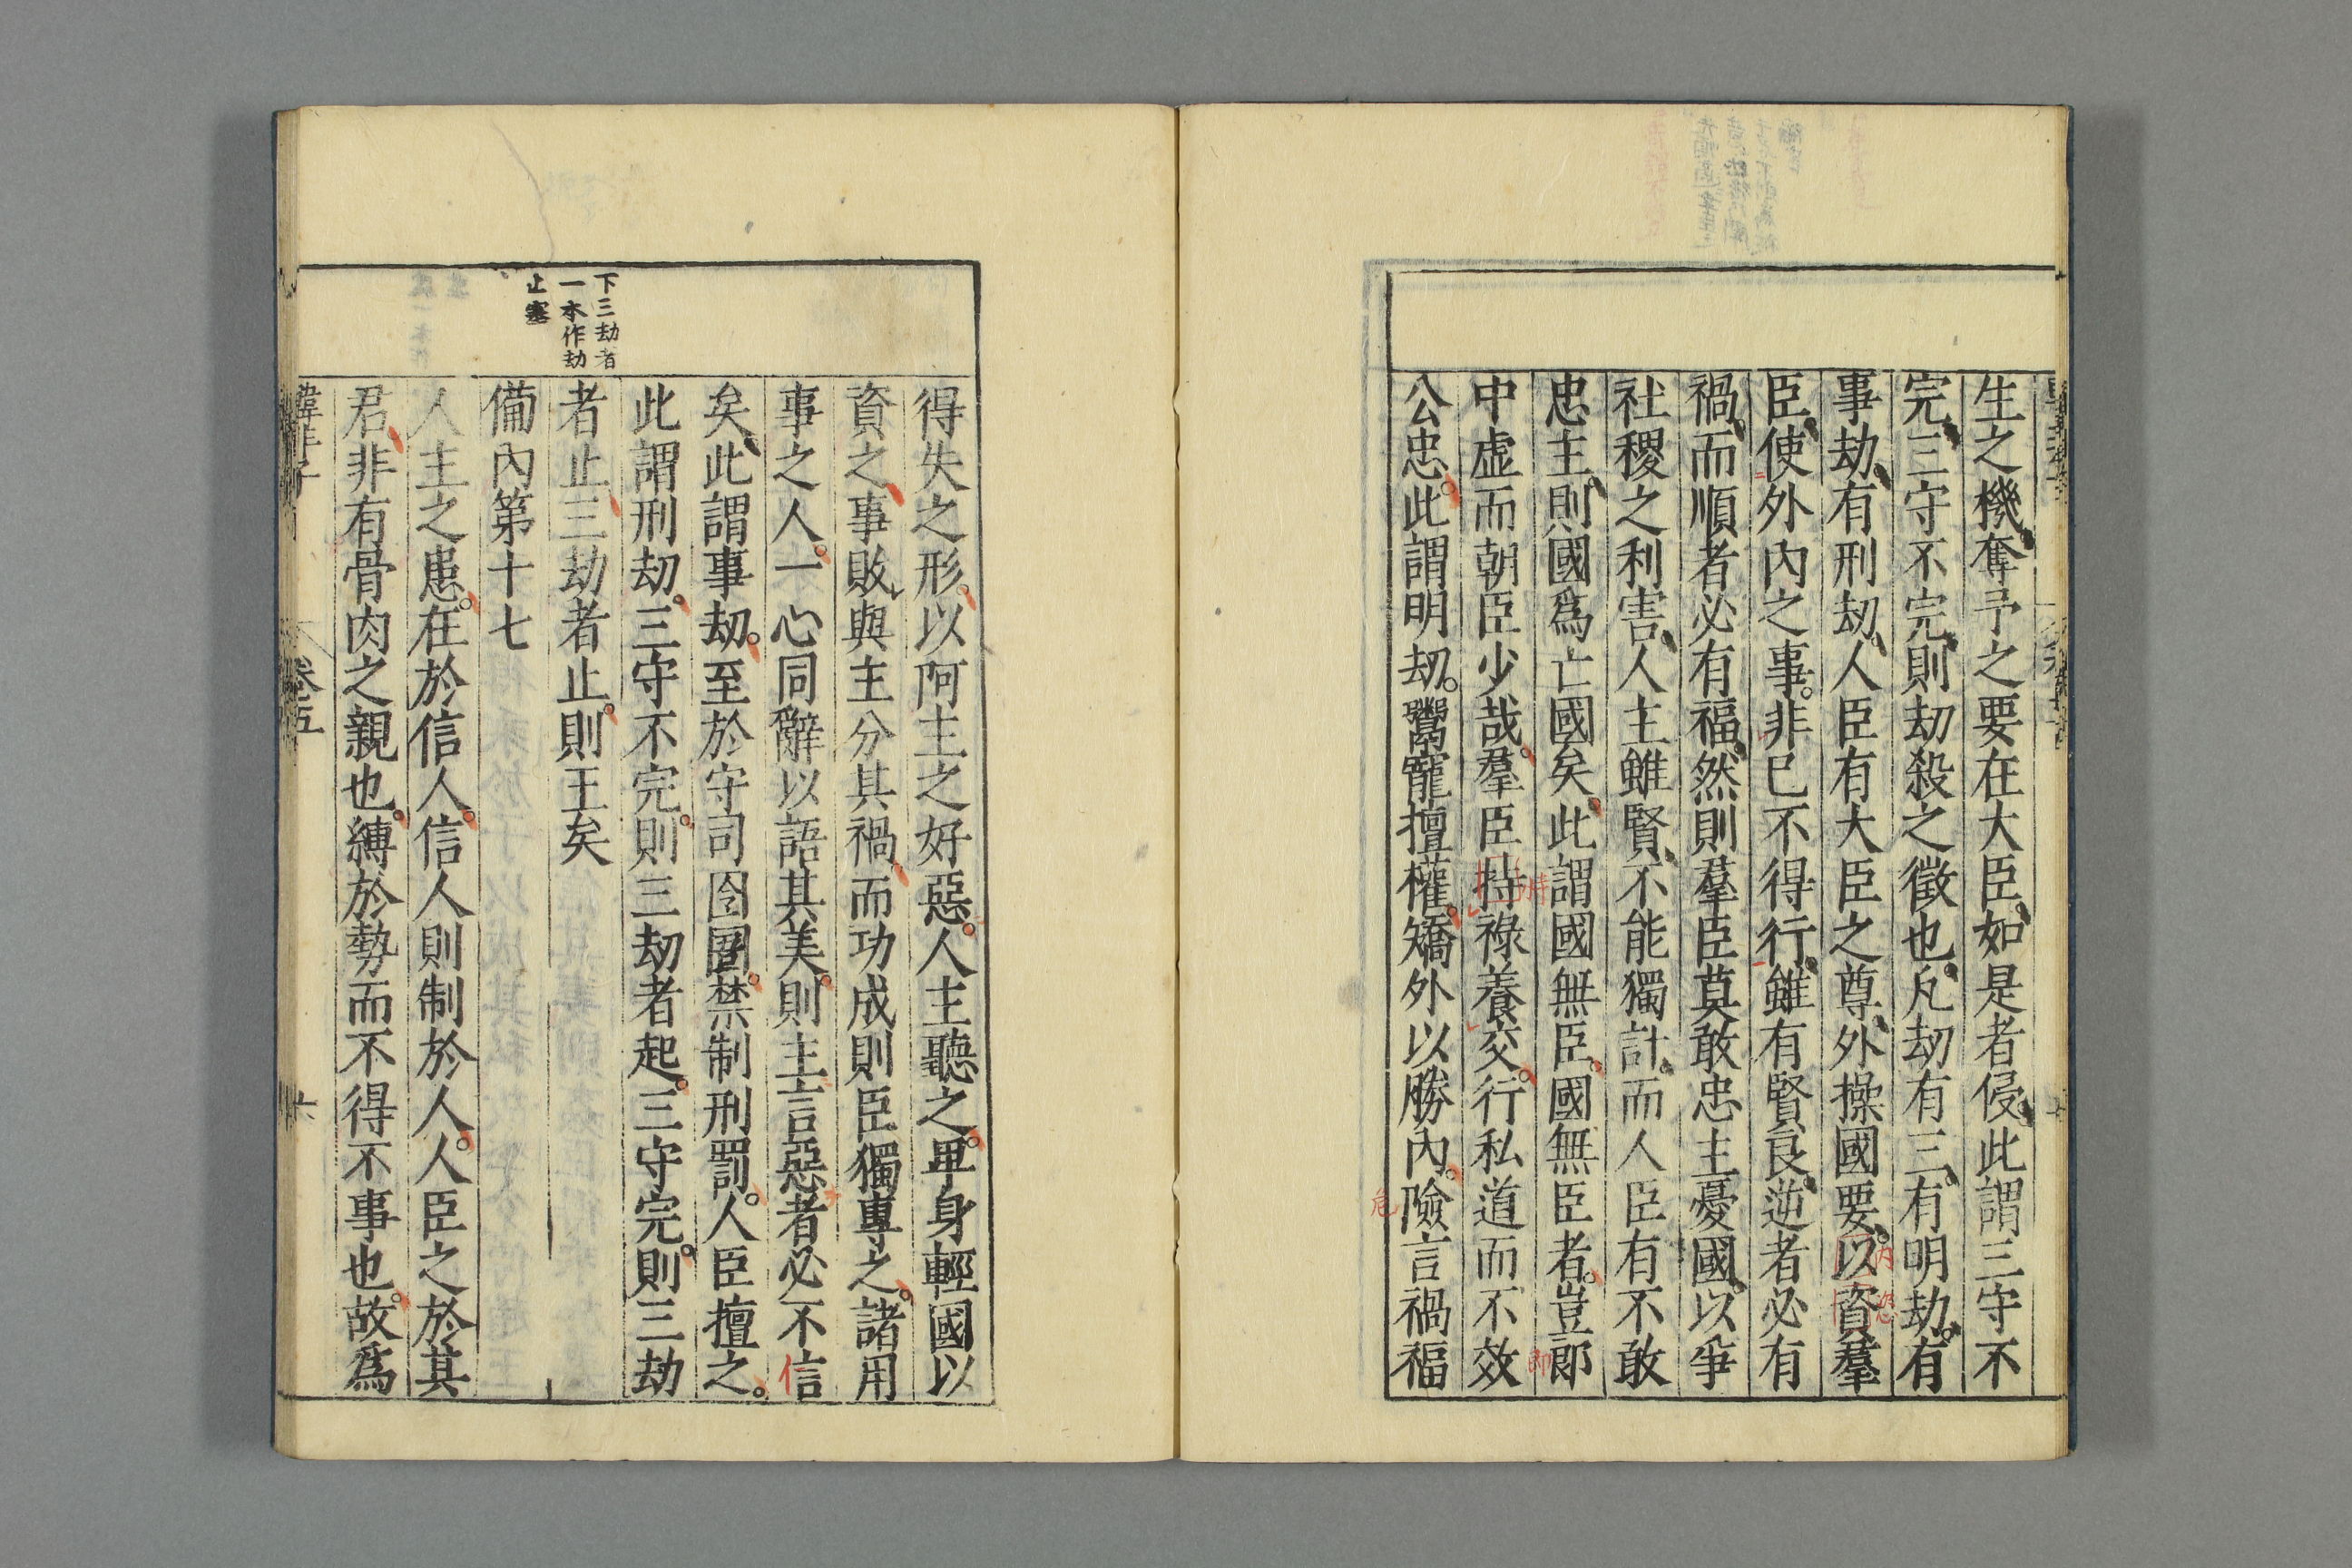 生之機奪予之要在大臣如是者侵此謂三守不
完三守不完則劫殺之徵也凡劫有三有明劫有
事劫有刑劫人臣有大臣之尊外操國要以資羣
臣使外內之事非己不得行雖有賢良逆者必有
禍而順者必有福然則羣臣莫敢忠主憂國以爭
社稷之利害人主雖賢不能獨計而人臣有不敢
忠主則國爲亡國矣此謂國無臣國無臣者豈郎
中虛而朝臣少哉羣臣持祿養交行私道而不效
公忠此謂明劫鬻寵擅權矯外以勝內險言禍福
得失之形以阿主之好惡人主聽之卑身輕國以
資之事敗與主分其禍而功成則臣獨專之諸用
事之人一心同辭以語其美則主言惡者必不信
矣此謂事劫至於守司囹圄禁制刑罰人臣擅之
此謂刑劫三守不完則三劫者起三守完則三劫
者止三劫者止則王矣
下三劫者
一本作劫
止塞
備內第十七
人主之患在於信人信人則制於人人臣之於其
君非有骨肉之親也縛於勢而不得不事也故爲
韓非子 卷五 十六